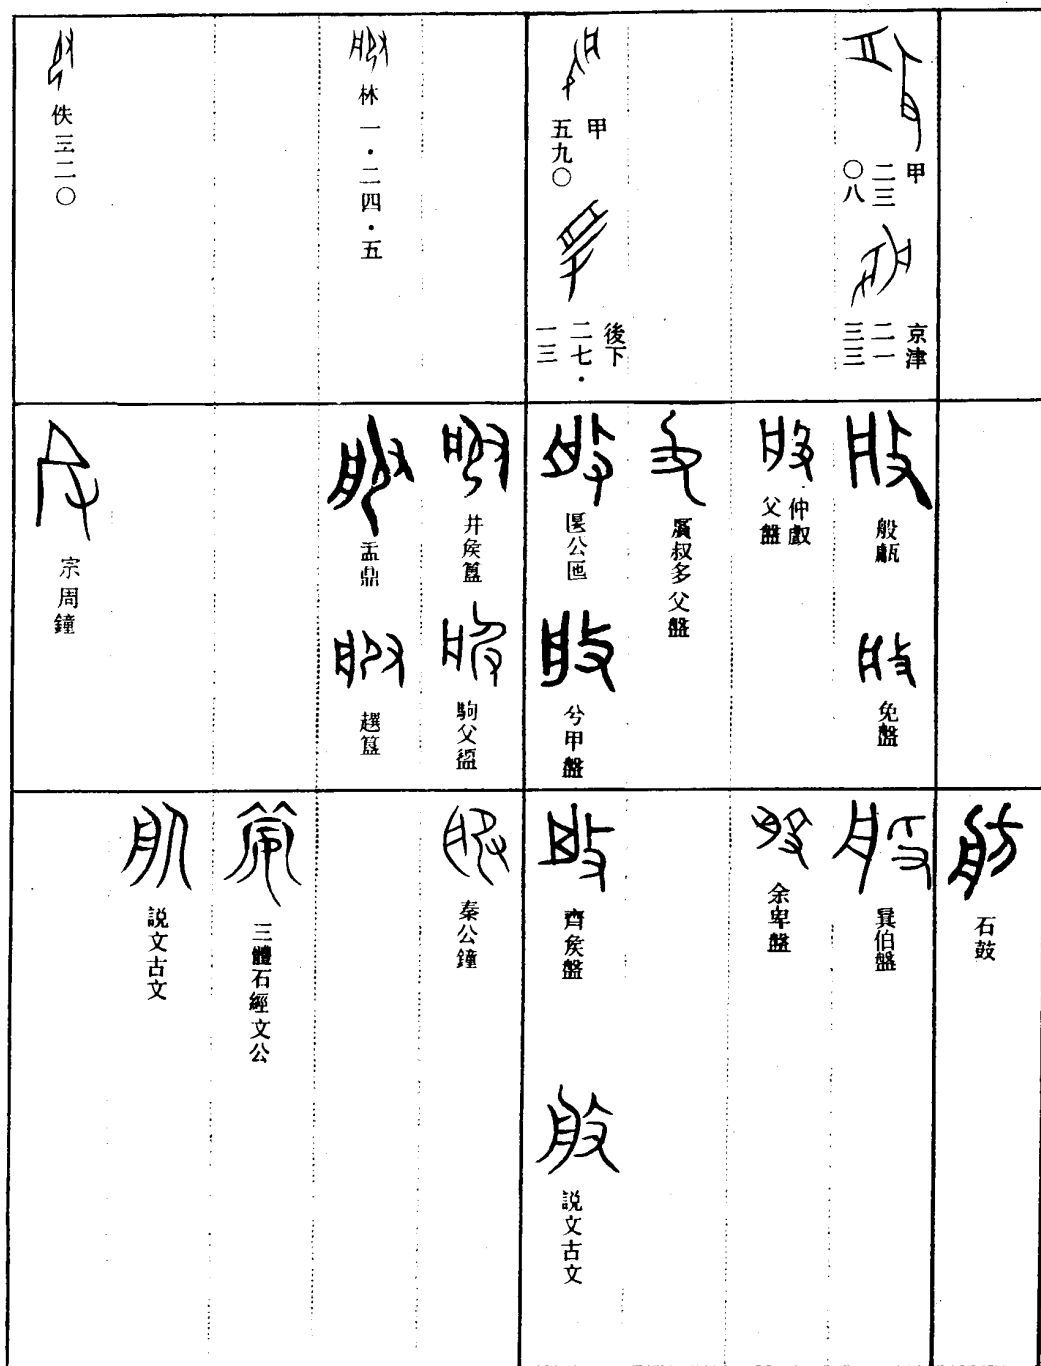 甲
二三
〇八
京津
二一
三三
甲
五九〇
後下
二七·
一三
林一·二四·五
佚三二〇
般甗
免盤
仲㪤
父盤
叔多父盤
匽公匜
兮甲盤
井矦簋
駒父盨
盂鼎
趞簋
宗周鐘
石鼓
㠱伯盤
余卑盤
齊矦盤
説文古文
秦公鐘
三體石經文公
説文古文